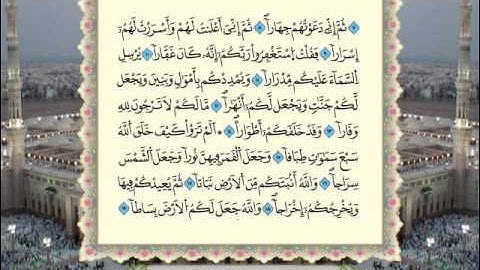 ثُمَّ إِنِّي دَعَوْتُهُمْ جِهَاراً ۝ ثُمَّ إِنِّيَ أَعْلَنتُ لَهُمْ وَأَسْرَرْتُ لَهُمُۥٓ
إِسْرَاراً ۝ فَقُلْتُ اُسْتَغْفِرُواْ رَبَّكُمُۥٓ إِنَّهُۥ كَانَ غَفَّاراً ١٠ يُرْسِلِ
اِ۬لسَّمَآءَ عَلَيْكُم مِّدْرَاراً ۝ وَيُمْدِدْكُم بِأَمْوَٰلٍ وَبَنِينَ وَيَجْعَل
لَّكُمْ جَنَّٰتٍ وَيَجْعَل لَّكُمُۥٓ أَنْهَٰراً ۝ مَّا لَكُمْ لَا تَرْجُونَ لِلهِ
وَقَاراً ۝ وَقَدْ خَلَقَكُمُۥٓ أَطْوَاراً ۝ اَلَمْ تَرَوْاْ كَيْفَ خَلَقَ اَ۬للَّهُ
سَبْعَ سَمَٰوَٰتٍ طِبَاقاً ۝ وَجَعَلَ اَ۬لْقَمَرَ فِيهِنَّ نُوراً وَجَعَلَ اَ۬لشَّمْسَ
سِرَاجاً ۝ وَاللَّهُ أَنۢبَتَكُم مِّنَ اَ۬لْأَرْضِ نَبَاتاً ۝ ثُمَّ يُعِيدُكُمْ فِيهَا
وَيُخْرِجُكُمُۥٓ إِخْرَاجاً ۝ وَاللَّهُ جَعَلَ لَكُمُ اُ۬لْأَرْضَ بِسَاطاً ۝